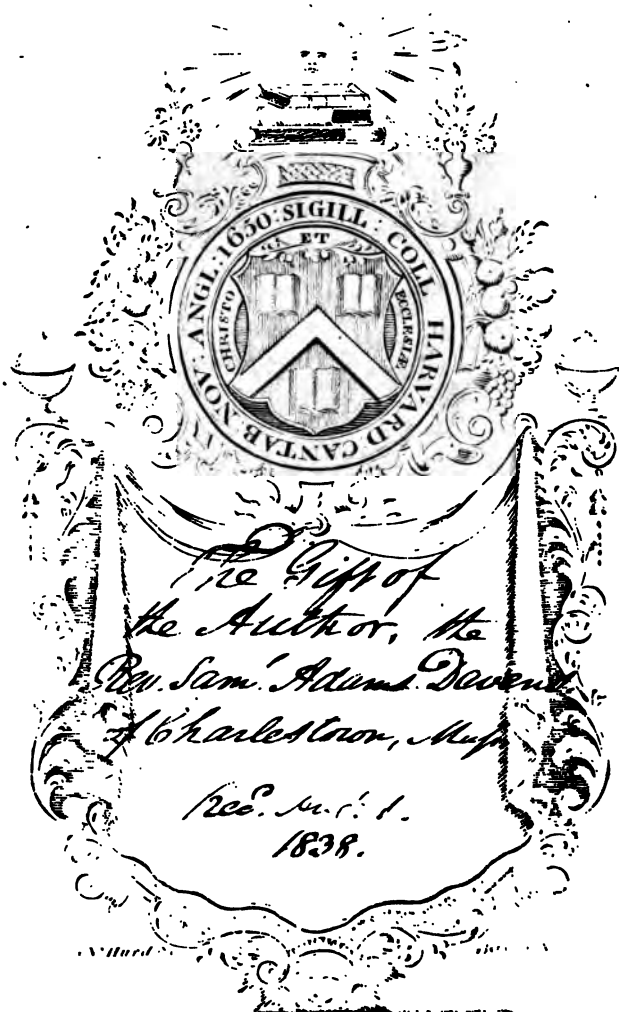 SIGILL : COLL HARVARD CANTAB : NOV : ANGL : 1650 :
ET
CHRISTO
ECCLESIÆ
The Gift of
the Author, the
Rev. Sam.l Adams Devens
of Charlestown, Mass.
Rec.d Aug. 1.
1838.
N Hurd